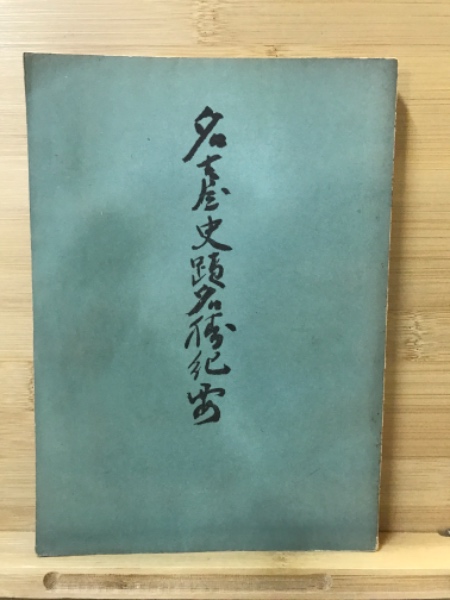 名古屋史蹟名勝紀要